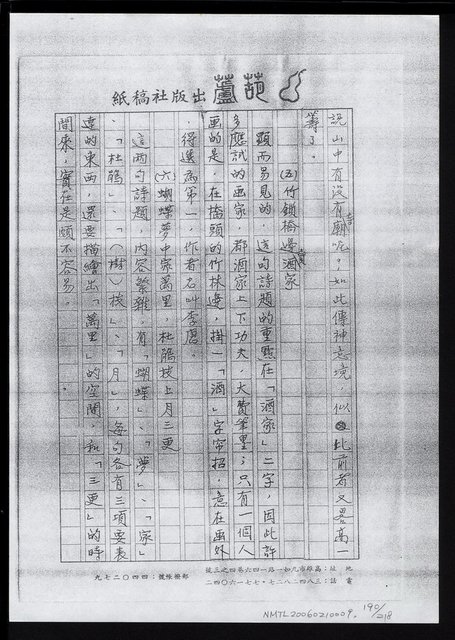 葫蘆出版社稿紙
說山中有沒有廟呢？如此傳神意境，似比前者又畧高一
籌了。
(五)竹鎖橋邊賣酒家
顯而易見的，這句詩題的重點在「酒家」二字，因此許
多應試的画家，都酒家上下功夫，大費筆墨；只有一個人
画的是，在橋頭的竹林邊，掛一「酒」字帘招，意在画外
，得選為第一，作者名叫李唐。
(六)蝴蝶夢中家萬里，杜鵑枝上月三更
這兩句詩題，內容繁雜，有「蝴蝶」、「夢」、「家」
、「杜鵑」、「(樹)枝」、「月」，每句各有三項要表
達的東西，還要描繪出「萬里」的空間，和「三更」的時
間來，實在是頗不容易。
地址：高雄市九如一路一四六巷四之三號
電話：三八四二八二七·七七一六〇四二
郵撥帳號：四四〇二七九
NMTL20060210009, 190/218